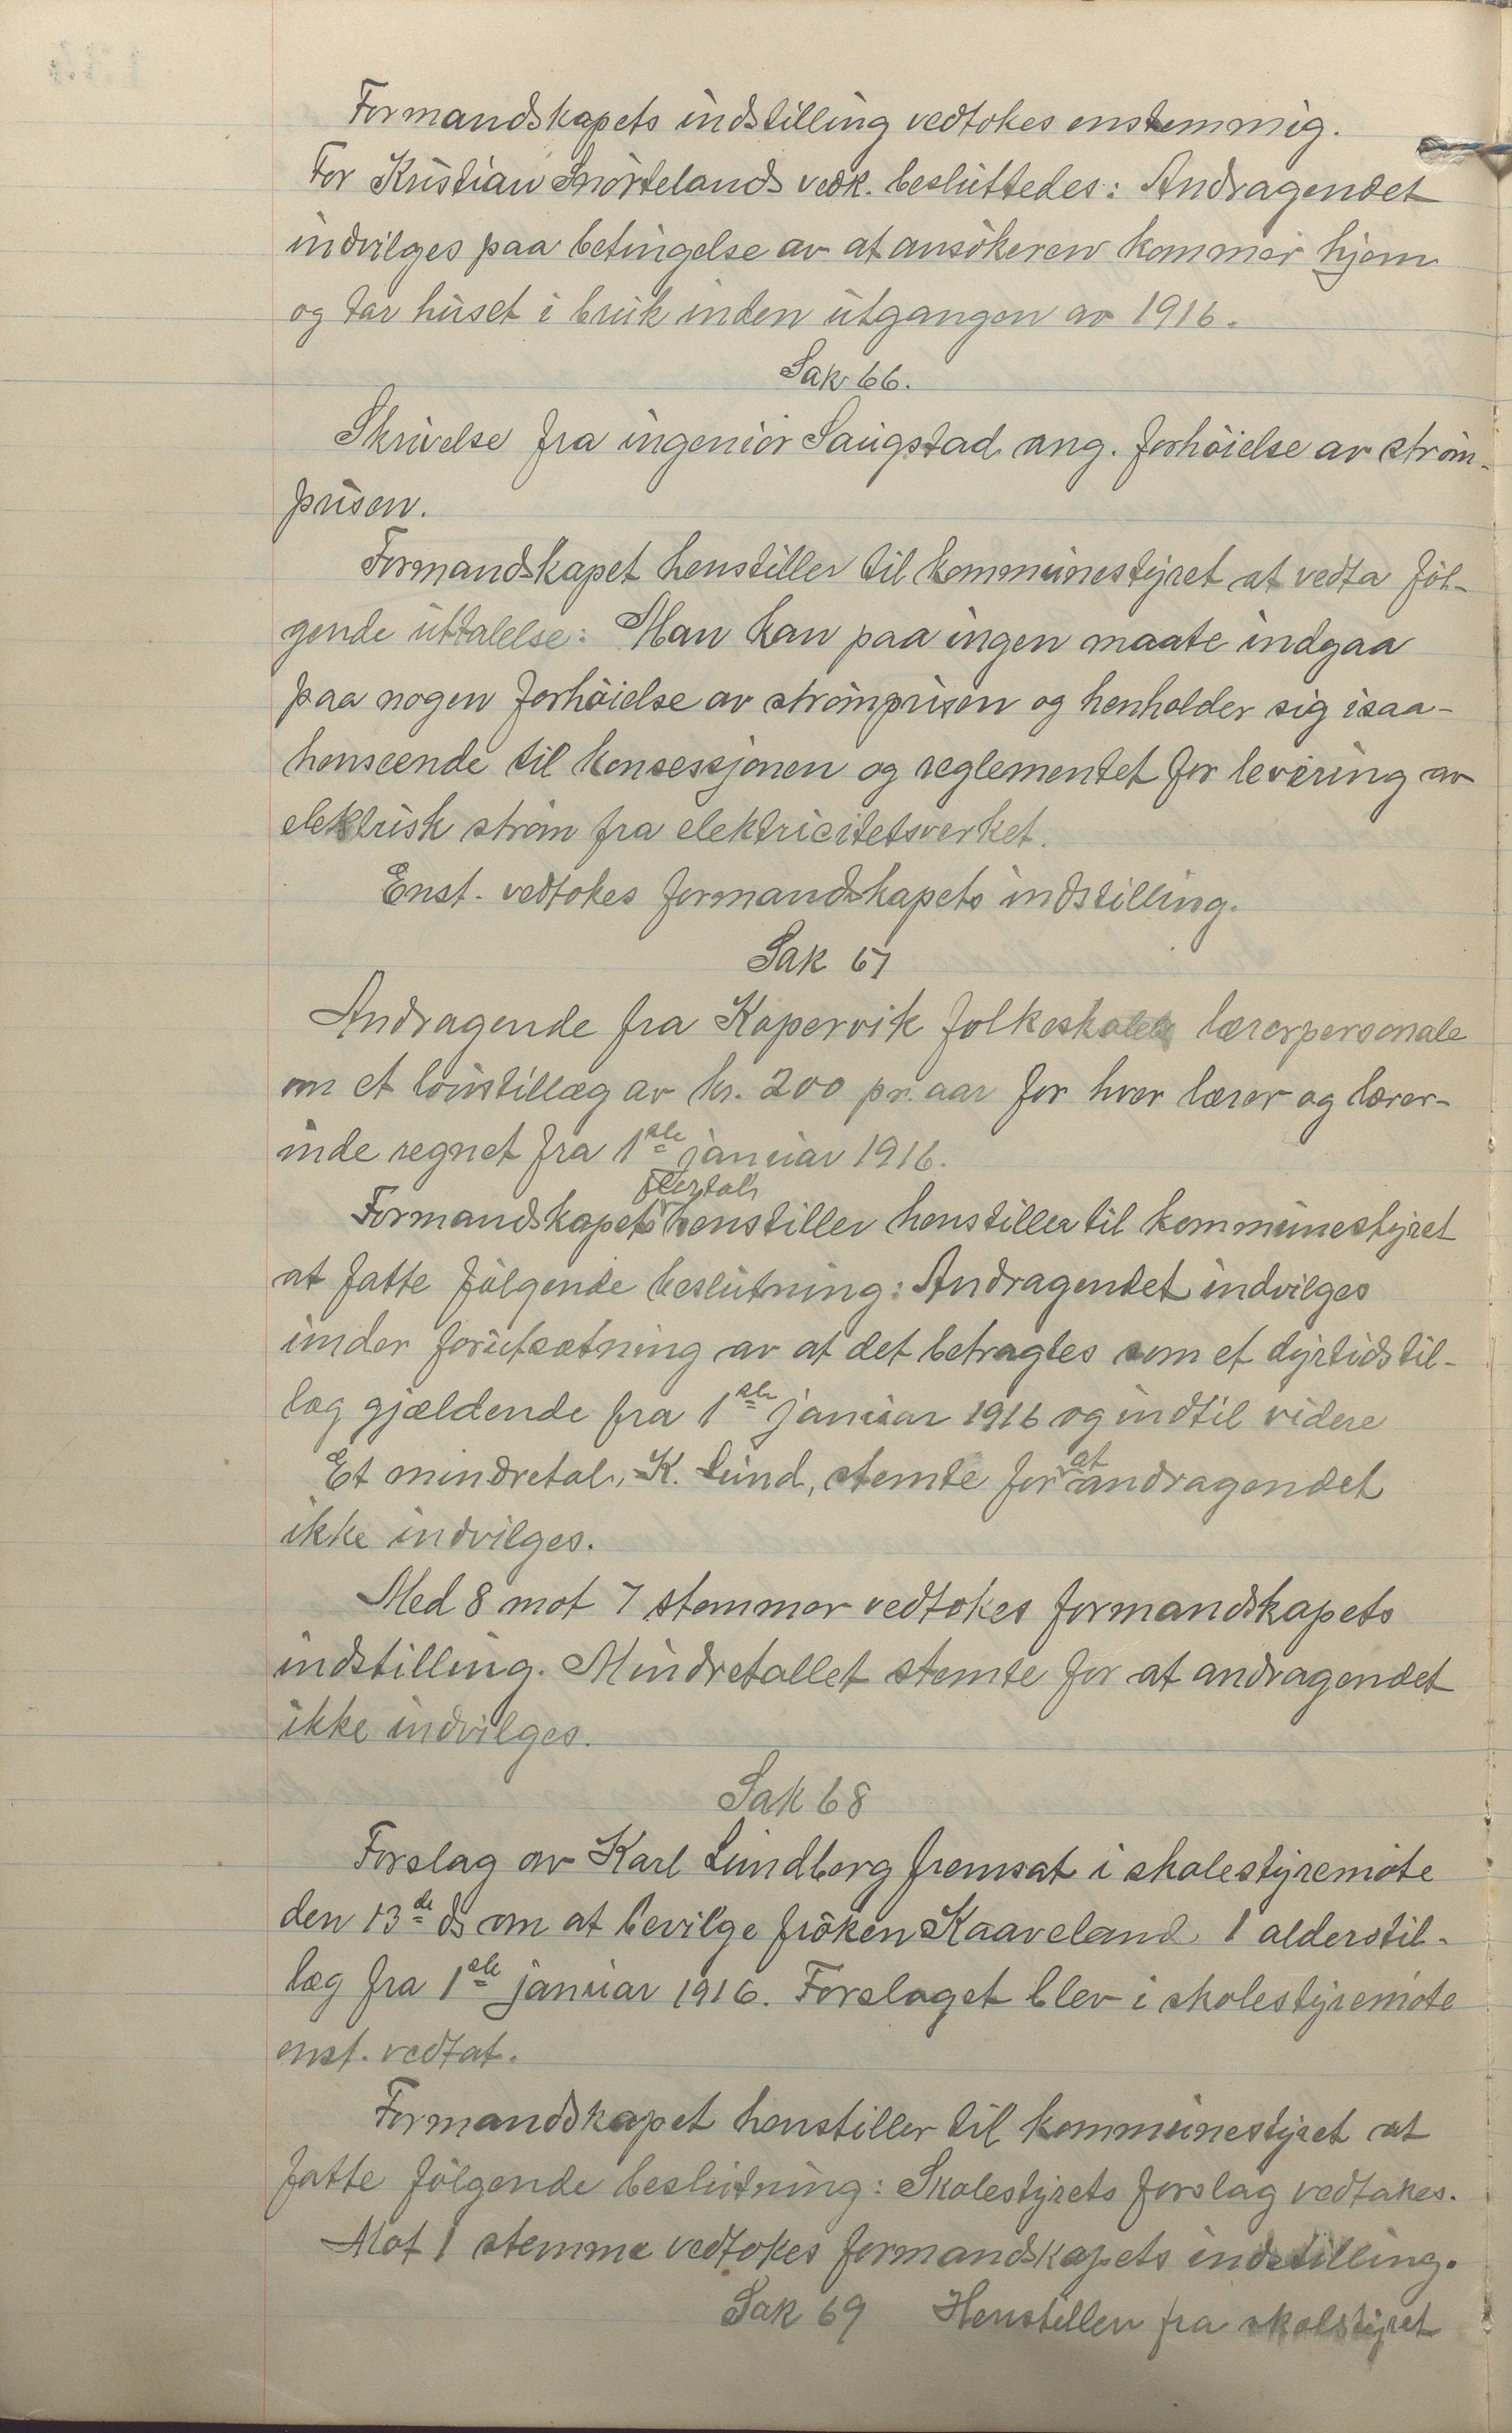 Formandskapets indstilling vedtokes enstemmig.
For Kristian Snörtelands vedk. besluttedes: Andragendet
indvilges paa betingelse av at ansökeren kommer hjem
og tar huset i bruk inden utgangen av 1916.
Sak 66.
Skrivelse fra ingeniör Saugstad ang. forhöielse av ström-
prisen.
Formandskapet henstiller til kommunestyret at vedta föl-
gende uttalelse: Man kan paa ingen maate indgaa
paa nogen forhöielse av strömprisen og henholder sig isaa-
henseende til konsessjonen og reglementet for levering av
elektrisk ström fra elektricitetsverket.
Enst. vedtokes formandskapets indstilling.
Sak 67
Andragende fra Kopervik folkeskoles lærerpersonale
om et lönstillæg av kr. 200 pr. aar for hver lærer og lærer-
inde regnet fra 1ste januar 1916.
flertal
Formandskapets henstiller henstiller til kommunestyret
at fatte fölgende beslutning: Andragendet indvilges
under forutsætning av at det betragtes som et dyrtidstil-
læg gjældende fra 1ste januar 1916 og indtil videre
Et mindretal, K. Lund, stemte for at andragendet
ikke indvilges.
Med 8 mot 7 stemmer vedtokes formandskapets
indstilling. Mindretallet stemte for at andragendet
ikke indvilges.
Sak 68
Forslag av Karl Lindberg fremsat i skolestyremöte
den 13de ds om at bevilge fröken Kaaveland 1 alderstil-
læg fra 1ste januar 1916. Forslaget blev i skolestyremöte
enst. vedtat.
Formandskapet henstiller til kommunestyret at
fatte fölgende beslutning: Skolestyrets forslag vedtakes.
Mot 1 stemme vedtokes formandskapets indstilling.
Sak 69 Henstillen fra skolstyret